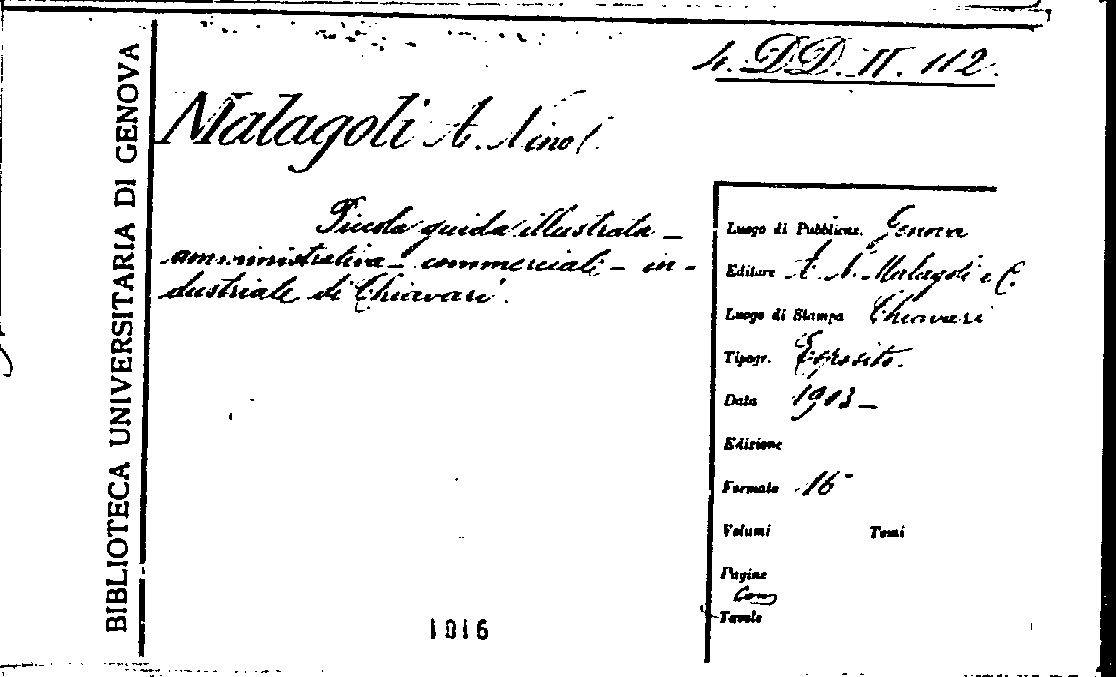 4. DD. II. 112.
BIBLIOTECA UNIVERSITARIA DI GENOVA
Malagoli A. Nino
Piccola guida illustrata –
amministrativa – commerciale – in-
dustriale di Chiavari.
Luogo di Pubblicaz. Genova
Editore A. N. Malagoli e C.
Luogo di Stampa Chiavari
Tipogr. Esposito.
Data 1913 –
Edizione
Formato 16
Volumi Tomi
Pagine
Con
Tavole
1016